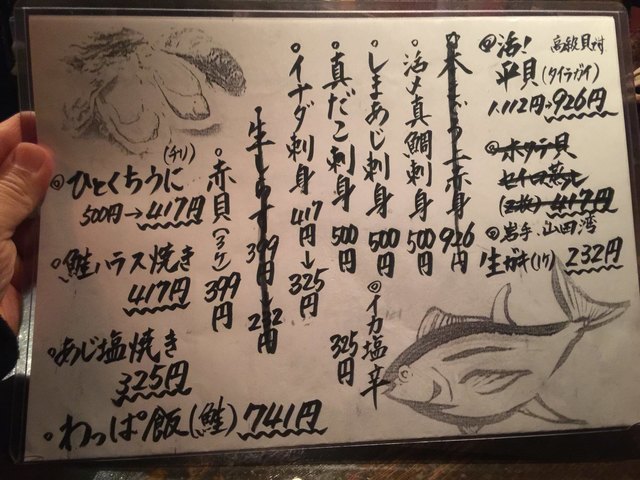 ◎活! 高級貝付
平貝(タイラガイ)
1.112円→926円
◎ホタテ貝
セイロ蒸し
(2枚) 417円
◎岩手 山田湾
生カキ(1ケ) 232円
本まぐろ上赤身 926円
活〆真鯛刺身 500円
しまあじ刺身 500円
真だこ刺身 500円
イナダ刺身 417円→325円
生しらす 399円→232円
赤貝(3ケ) 399円
◎イカ塩辛 325円
◎ひとくちうに (チリ)
500円→417円
鮭ハラス焼き
417円
あじ塩焼き
325円
わっぱ飯(鮭) 741円